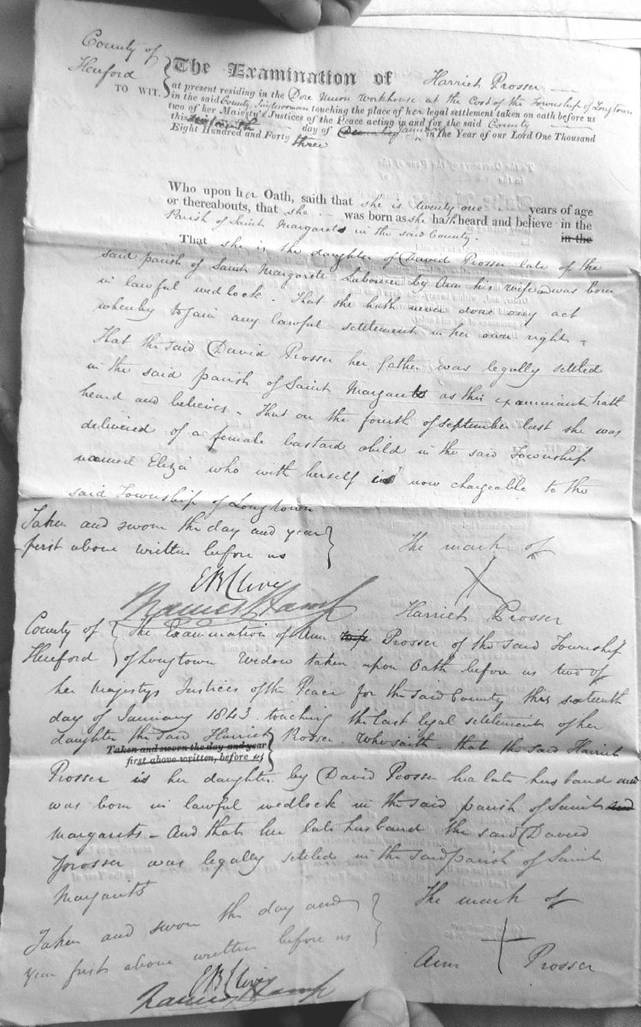 County of
Hereford
TO WIT.
The Examination of Harriet Prosser
at present residing in the Dore Union Workhouse at the Cost of the Township of Longtown
in the said County Singlewoman touching the place of her legal settlement taken on oath before us
two of her Majesty's Justices of the Peace acting in and for the said County
this sixteenth day of January in the Year of our Lord One Thousand
Eight Hundred and Forty three
Who upon her Oath, saith that she is twenty one years of age
or thereabouts, that she was born as she hath heard and believe in the
Parish of Saint Margarets in the said County. in the
That she is the daughter of David Prosser late of the
said parish of Saint Margarets Labourer by Ann his wife was born
in lawful wedlock. That she hath never done any act
whereby to gain any lawful settlement in her own right.
That the said David Prosser her father was legally settled
in the said parish of Saint Margarets as this examinant hath
heard and believes. That on the fourth of September last she was
delivered of a female bastard child in the said Township
named Eliza who with herself is now chargeable to the
said Township of Longtown
Taken and sworn the day and year
first above written before us
The mark of
X
Harriet Prosser
County of
Hereford
The Examination of Ann Prosser of the said Township
of Longtown Widow taken upon Oath before us two of
her Majestys Justices of the Peace for the said County this sixteenth
day of January 1843 touching the last legal settlement of her
daughter the said Harriet Prosser who saith that the said Harriet
Taken and sworn the day and year
first above written, before us
Prosser is her daughter by David Prosser her late husband and
was born in lawful wedlock in the said parish of Saint
Margarets - And that her late husband the said David
Prosser was legally settled in the said parish of Saint
Margarets
Taken and sworn the day and
year first above written before us
The mark of
X
Ann Prosser